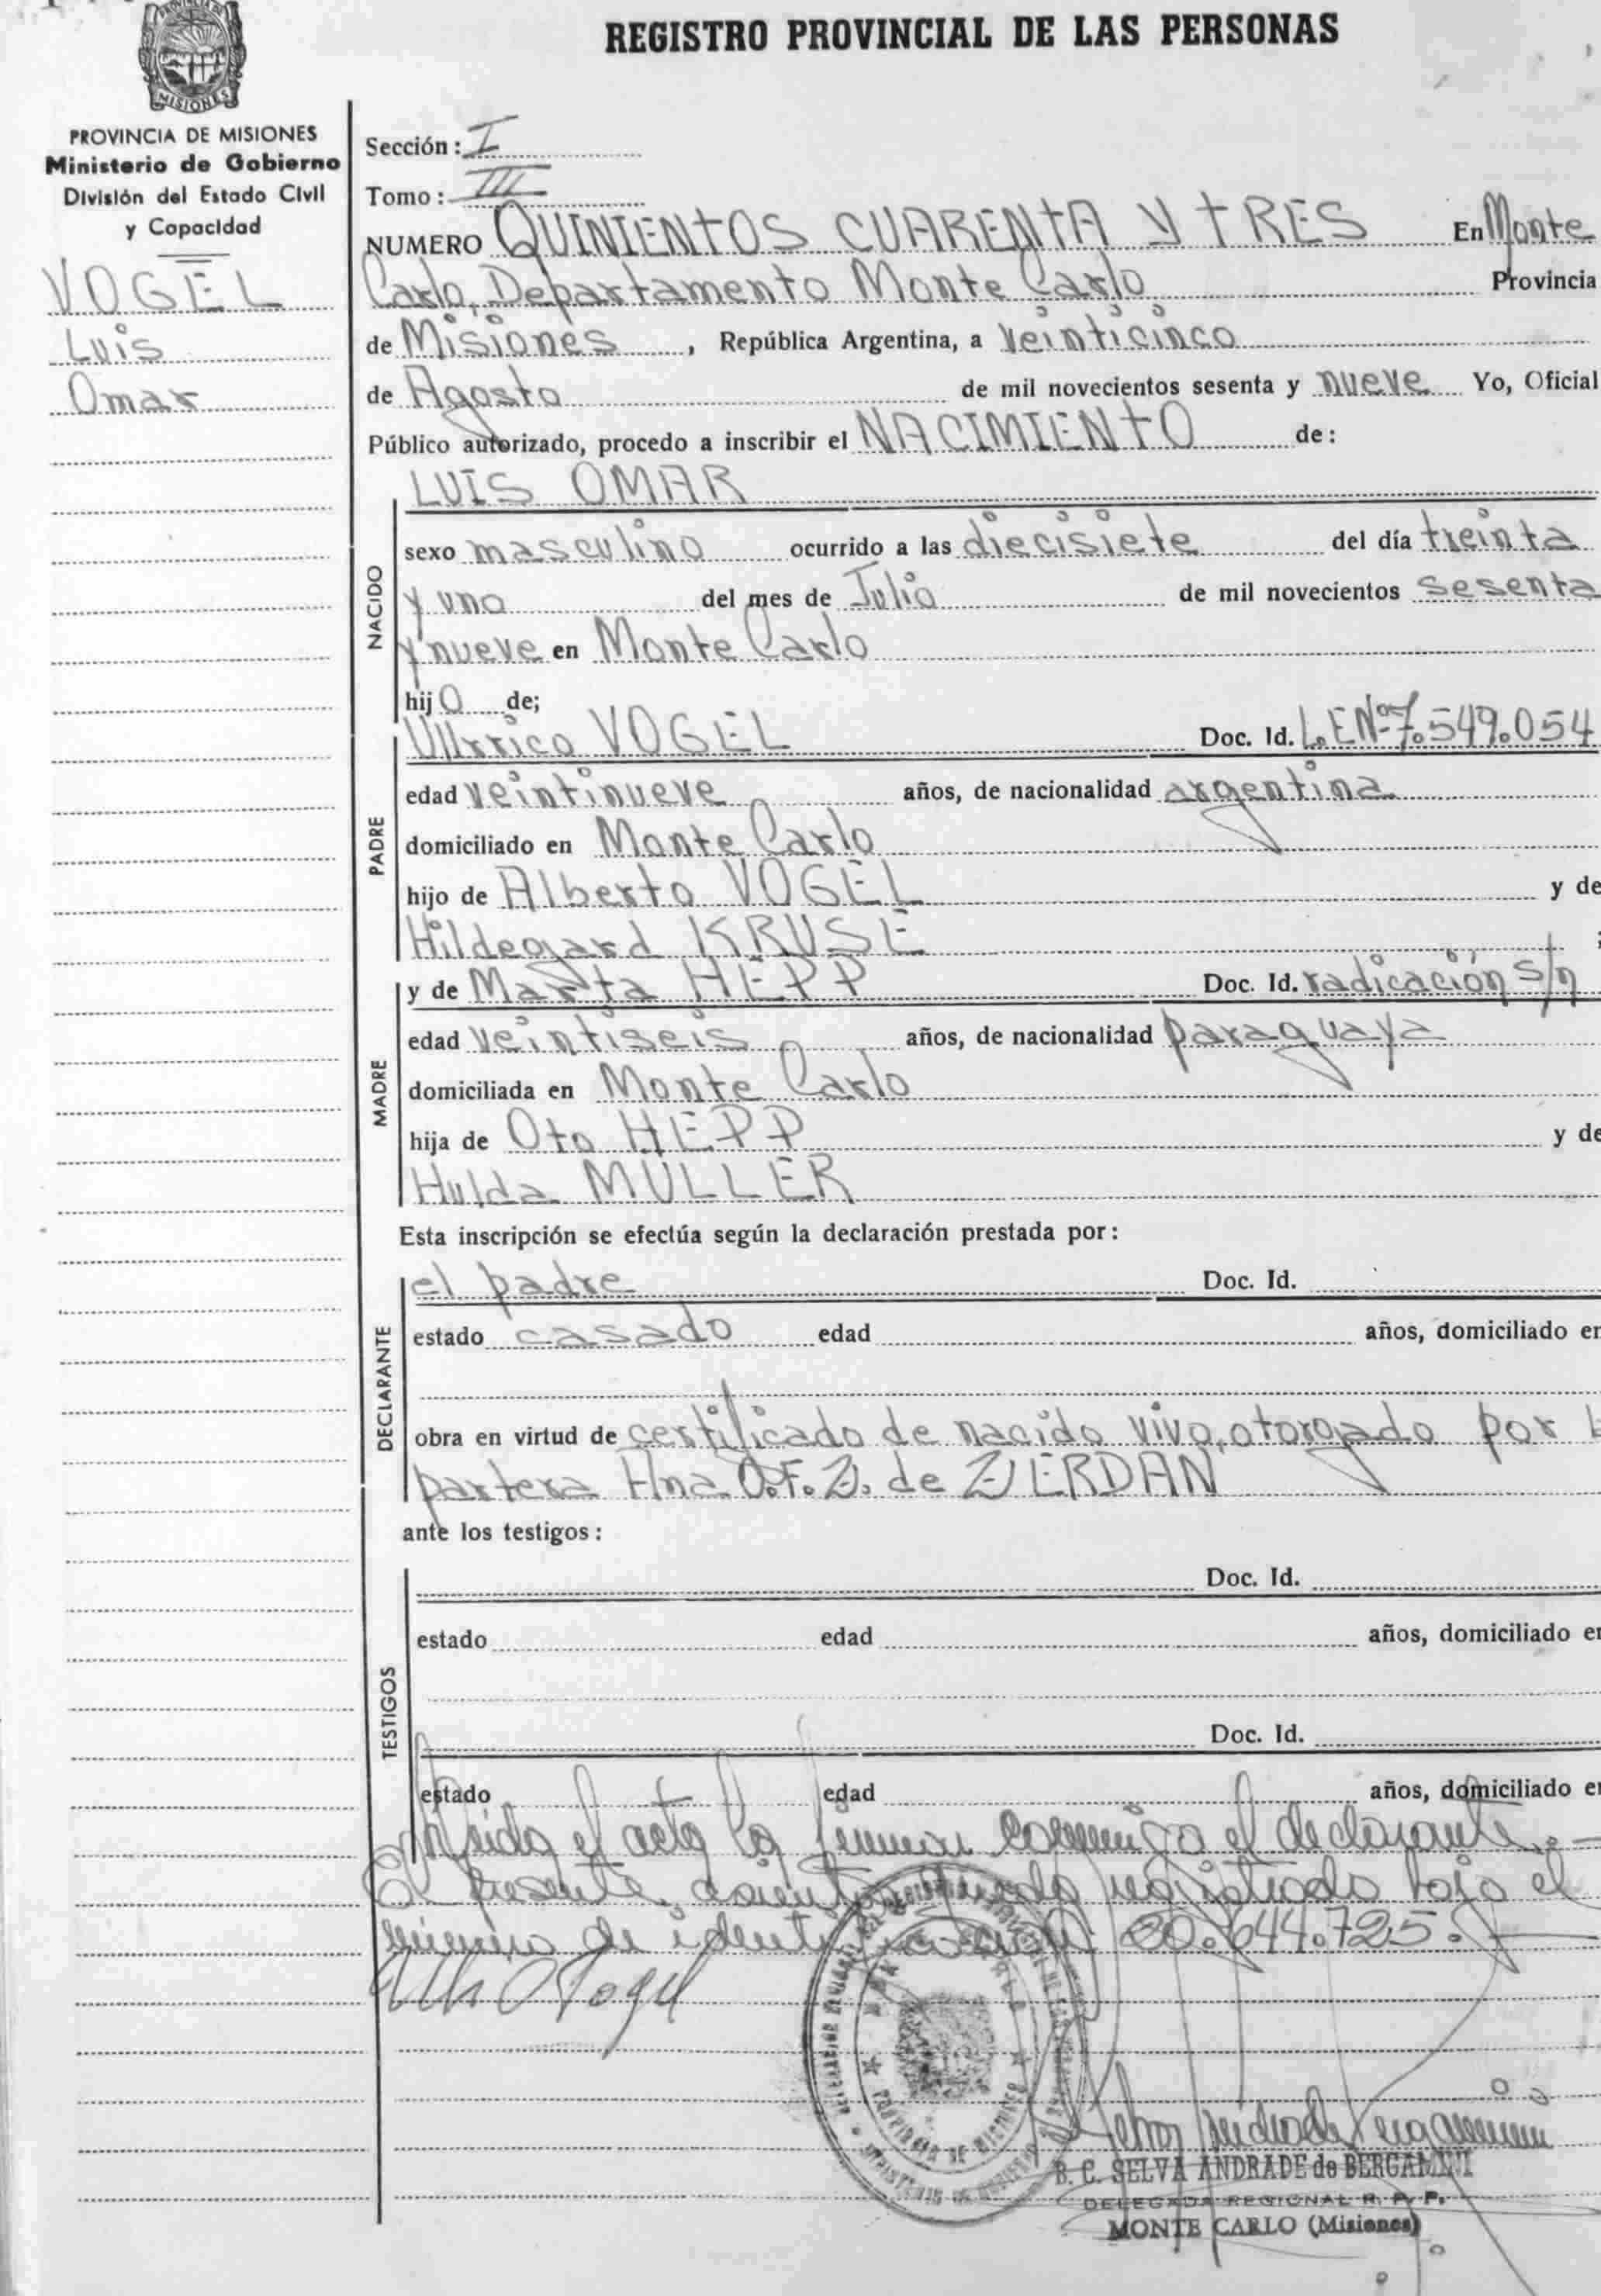 REGISTRO PROVINCIAL DE LAS PERSONAS
MISIONES
PROVINCIA DE MISIONES
Ministerio de Gobierno
División del Estado Civil
y Capacidad
VOGEL
Luis
Omar
Sección: I
Tomo: III
NUMERO QUINIENTOS CUARENTA Y TRES En Monte
Carlo, Departamento Monte Carlo Provincia
de Misiones, República Argentina, a veinticinco
de Agosto de mil novecientos sesenta y nueve Yo, Oficial
Público autorizado, procedo a inscribir el NACIMIENTO de:
LUIS OMAR
NACIDO
sexo masculino ocurrido a las diecisiete del día treinta
y uno del mes de Julio de mil novecientos sesenta
y nueve en Monte Carlo
hijo de;
PADRE
Ullrrico VOGEL Doc. Id. L.E.Nº7.549.054
edad veintinueve años, de nacionalidad argentina
domiciliado en Monte Carlo
hijo de Alberto VOGEL y de
Hildegard KRUSE ;
MADRE
y de Marta HEPP Doc. Id. radicación s/n
edad veintiseis años, de nacionalidad paraguaya
domiciliada en Monte Carlo
hija de Oto HEPP y de
Hulda MULLER
Esta inscripción se efectúa según la declaración prestada por:
DECLARANTE
el padre Doc. Id.
estado casado edad años, domiciliado en
obra en virtud de certificado de nacido vivo, otorgado por l
partera Hna O.F.Z. de ZIERDAN
ante los testigos:
TESTIGOS
Doc. Id.
estado edad años, domiciliado en
Doc. Id.
estado edad años, domiciliado en
leida el acta la firman conmigo el declarante.-
El presente asiento queda registrado bajo el
número de identificación 20.644.725.-
B. C. SELVA ANDRADE de BERGAMINI
DELEGADA REGIONAL R. P. P.
MONTE CARLO (Misiones)